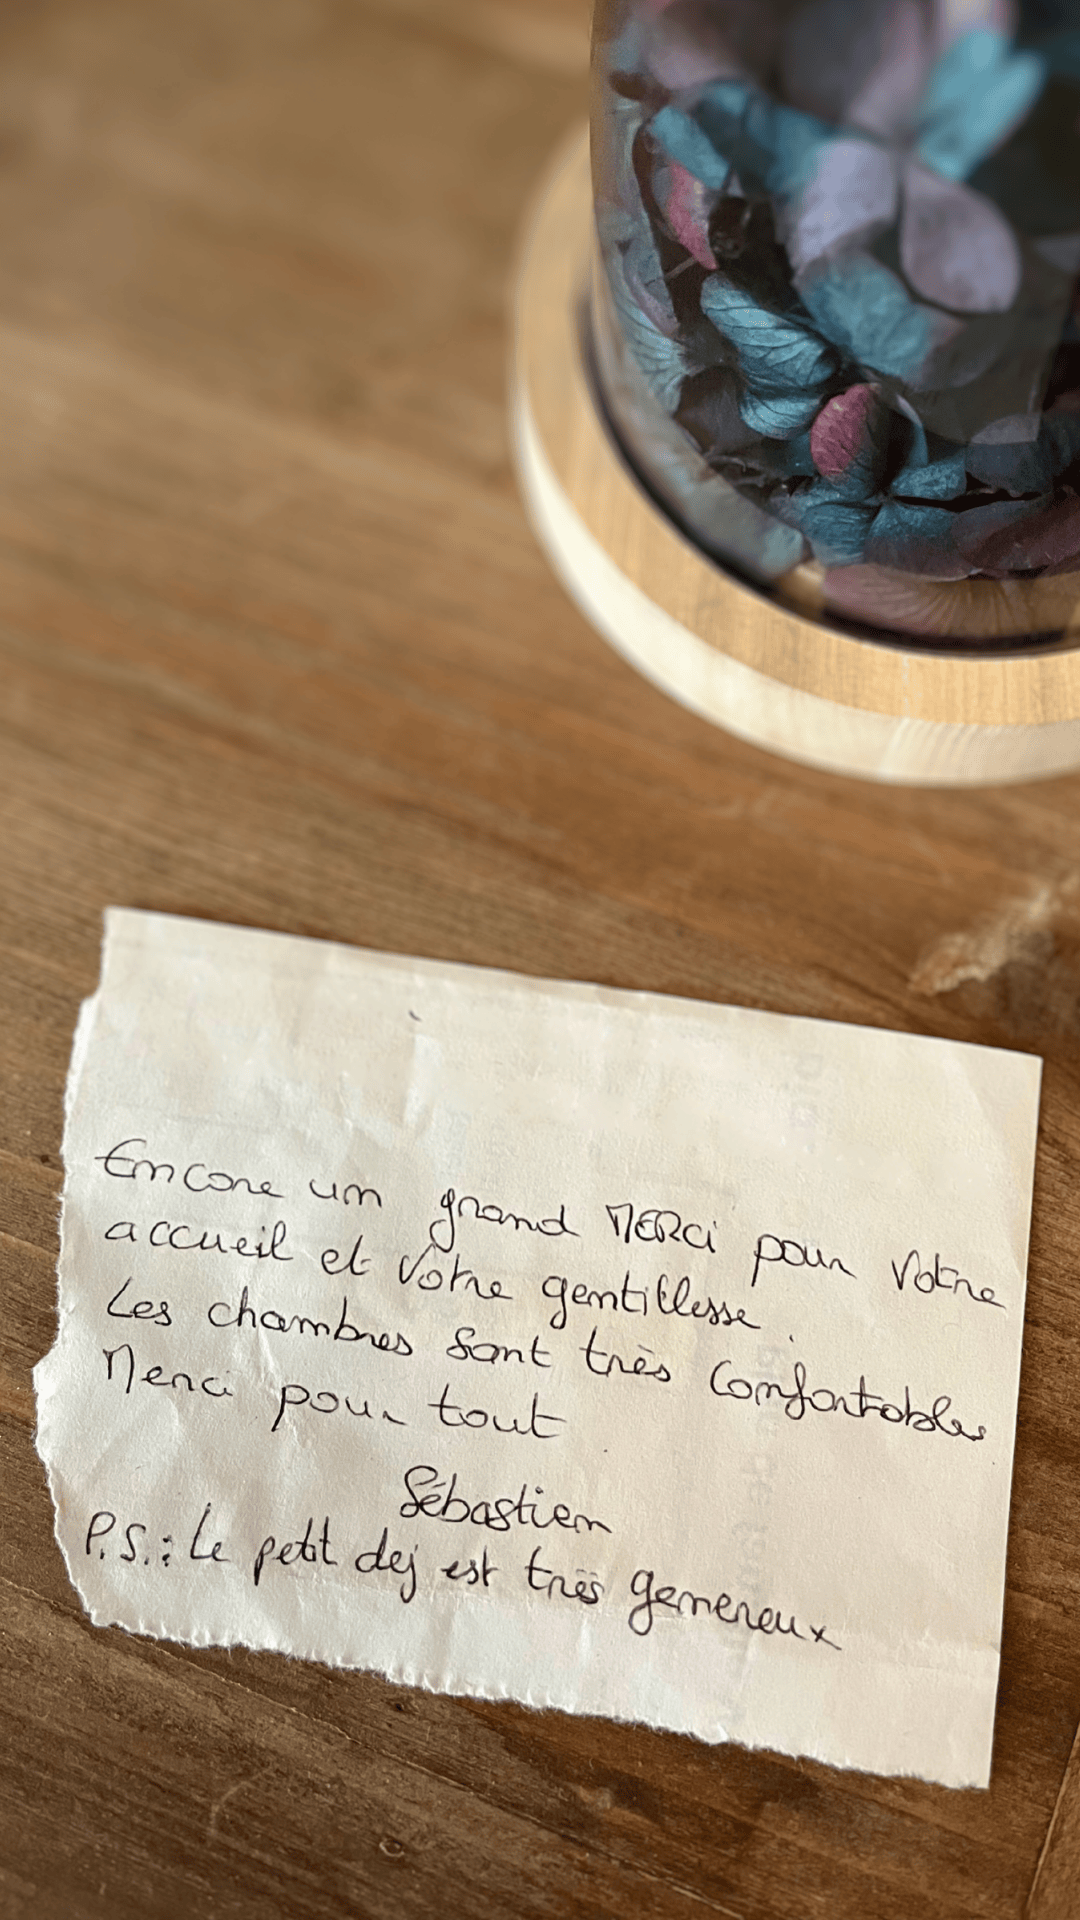 Encore un grand MERCi pour votre
accueil et votre gentillesse.
Les chambres sont très comfortables
Merci pour tout
Sébastien
P.S.: Le petit dej est très genereux